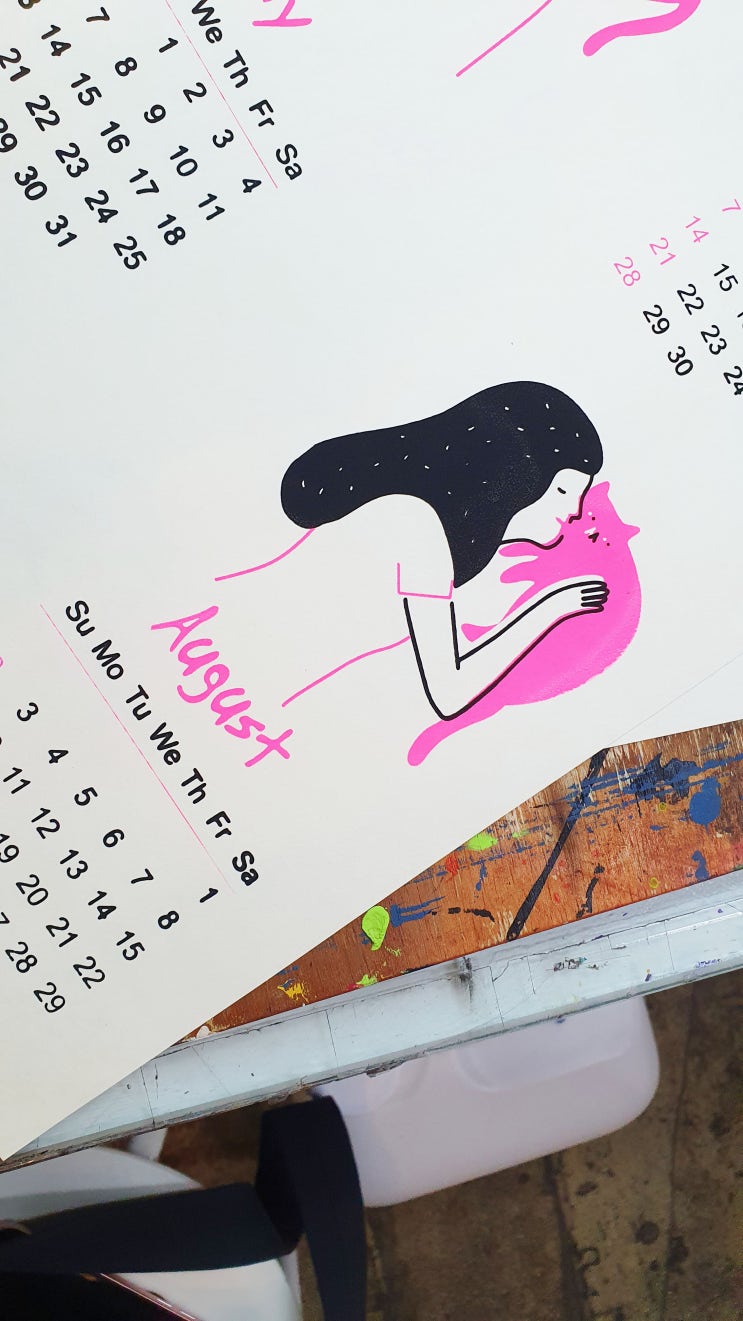 y
We Th Fr Sa
1 2 3 4
7 8 9 10 11
14 15 16 17 18
21 22 23 24 25
29 30 31
7
14 15
21 22 23 24
28 29 30
August
Su Mo Tu We Th Fr Sa
1
3 4 5 6 7 8
11 12 13 14 15
19 20 21 22
28 29